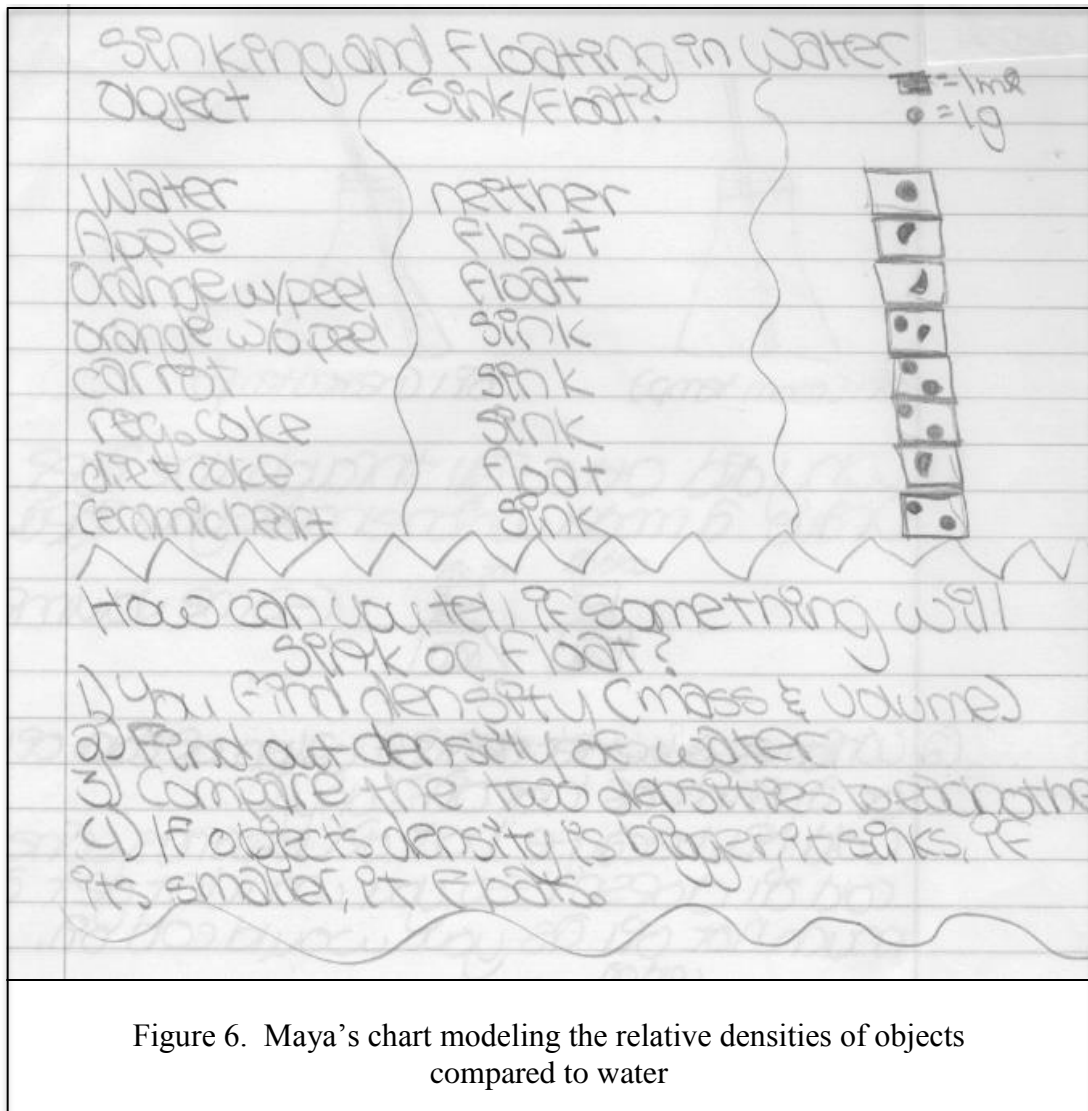 Sinking and Floating in Water
Object Sink/Float? = 1ml
= 1g
Water neither
Apple float
Orange w/peel float
orange w/o peel sink
carrot sink
reg. coke sink
diet coke float
ceramic heart sink
How can you tell if something will
sink or float?
1) You find density (mass & volume)
2) Find out density of water
3) Compare the two densities to each othe
4) If objects density is bigger, it sinks, if
its smaller, it floats.
Figure 6. Maya's chart modeling the relative densities of objects
compared to water